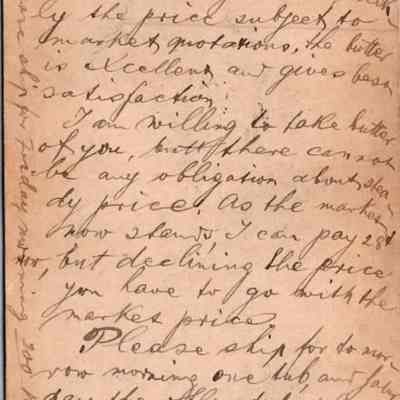 ly the price subject to
market quotations, the butter
is excellent and gives best
satisfaction.
I am willing to take butter
of you, but there cannot
be any obligation about stea-
dy price. As the market
now stands, I can pay 28¢
but declining the price
you have to go with the
market price.
Please ship for to mor-
row morning one tub, and
ship for Friday morning 200